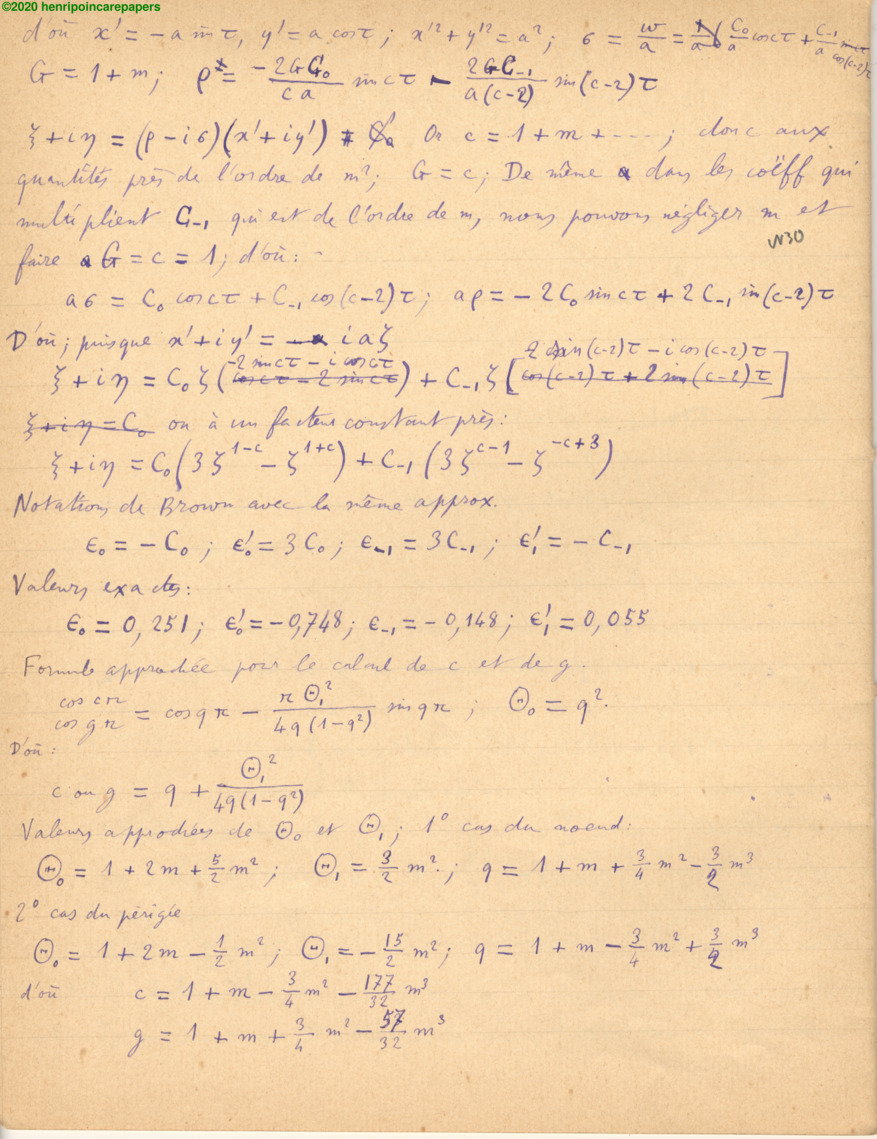 ©2020 henripoincarepapers
d'où x' = -a sin τ, y' = a cos τ ; x'² + y'² = a² ; σ = w/a = C₀/a cos cτ + C₋₁/a cos(c-2)τ
G = 1 + m ; ρ = -2GC₀/ca sin cτ - 2GC₋₁/a(c-2) sin(c-2)τ
ξ + iη = (ρ - iσ)(x' + iy') Or c = 1 + m + ---- ; donc aux
quantités près de l'ordre de m² ; G = c ; De même dans les coëff qui
multiplient C₋₁ qui est de l'ordre de m, nous pouvons négliger m et
N30
faire G = c = 1 ; d'où : -
aσ = C₀ cos cτ + C₋₁ cos(c-2)τ ; aρ = -2C₀ sin cτ + 2C₋₁ sin(c-2)τ
D'où ; puisque x' + iy' = iaζ
ξ + iη = C₀ζ(-2 sin cτ - i cos cτ) + C₋₁ζ[2 sin(c-2)τ - i cos(c-2)τ]
ξ + iη = C₀ ou à un facteur constant près :
ξ + iη = C₀(3ζ¹⁻ᶜ - ζ¹⁺ᶜ) + C₋₁(3ζᶜ⁻¹ - ζ⁻ᶜ⁺³)
Notations de Brown avec la même approx.
ϵ₀ = -C₀ ; ϵ'₀ = 3C₀ ; ϵ₋₁ = 3C₋₁ ; ϵ'₁ = -C₋₁
Valeurs exactes :
ϵ₀ = 0,251 ; ϵ'₀ = -0,748 ; ϵ₋₁ = -0,148 ; ϵ'₁ = 0,055
Formule approchée pour le calcul de c et de g.
cos cπ
cos gπ = cos qπ - πΘ₁²/4q(1-q²) sin qπ ; Θ₀ = q².
D'où :
c ou g = q + Θ₁²/4q(1-q²)
Valeurs approchées de Θ₀ et Θ₁ ; 1° cas du noeud :
Θ₀ = 1 + 2m + 5/2 m² ; Θ₁ = 3/2 m². ; q = 1 + m + 3/4 m² - 3/2 m³
2° cas du périgée
Θ₀ = 1 + 2m - 1/2 m² ; Θ₁ = -15/2 m² ; q = 1 + m - 3/4 m² + 3/2 m³
d'où c = 1 + m - 3/4 m² - 177/32 m³
g = 1 + m + 3/4 m² - 57/32 m³